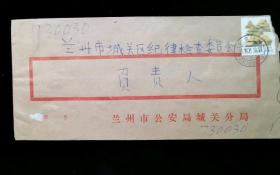 730030
兰州市城关区纪律检查委员会
负责人
兰州市公安局城关分局
730030